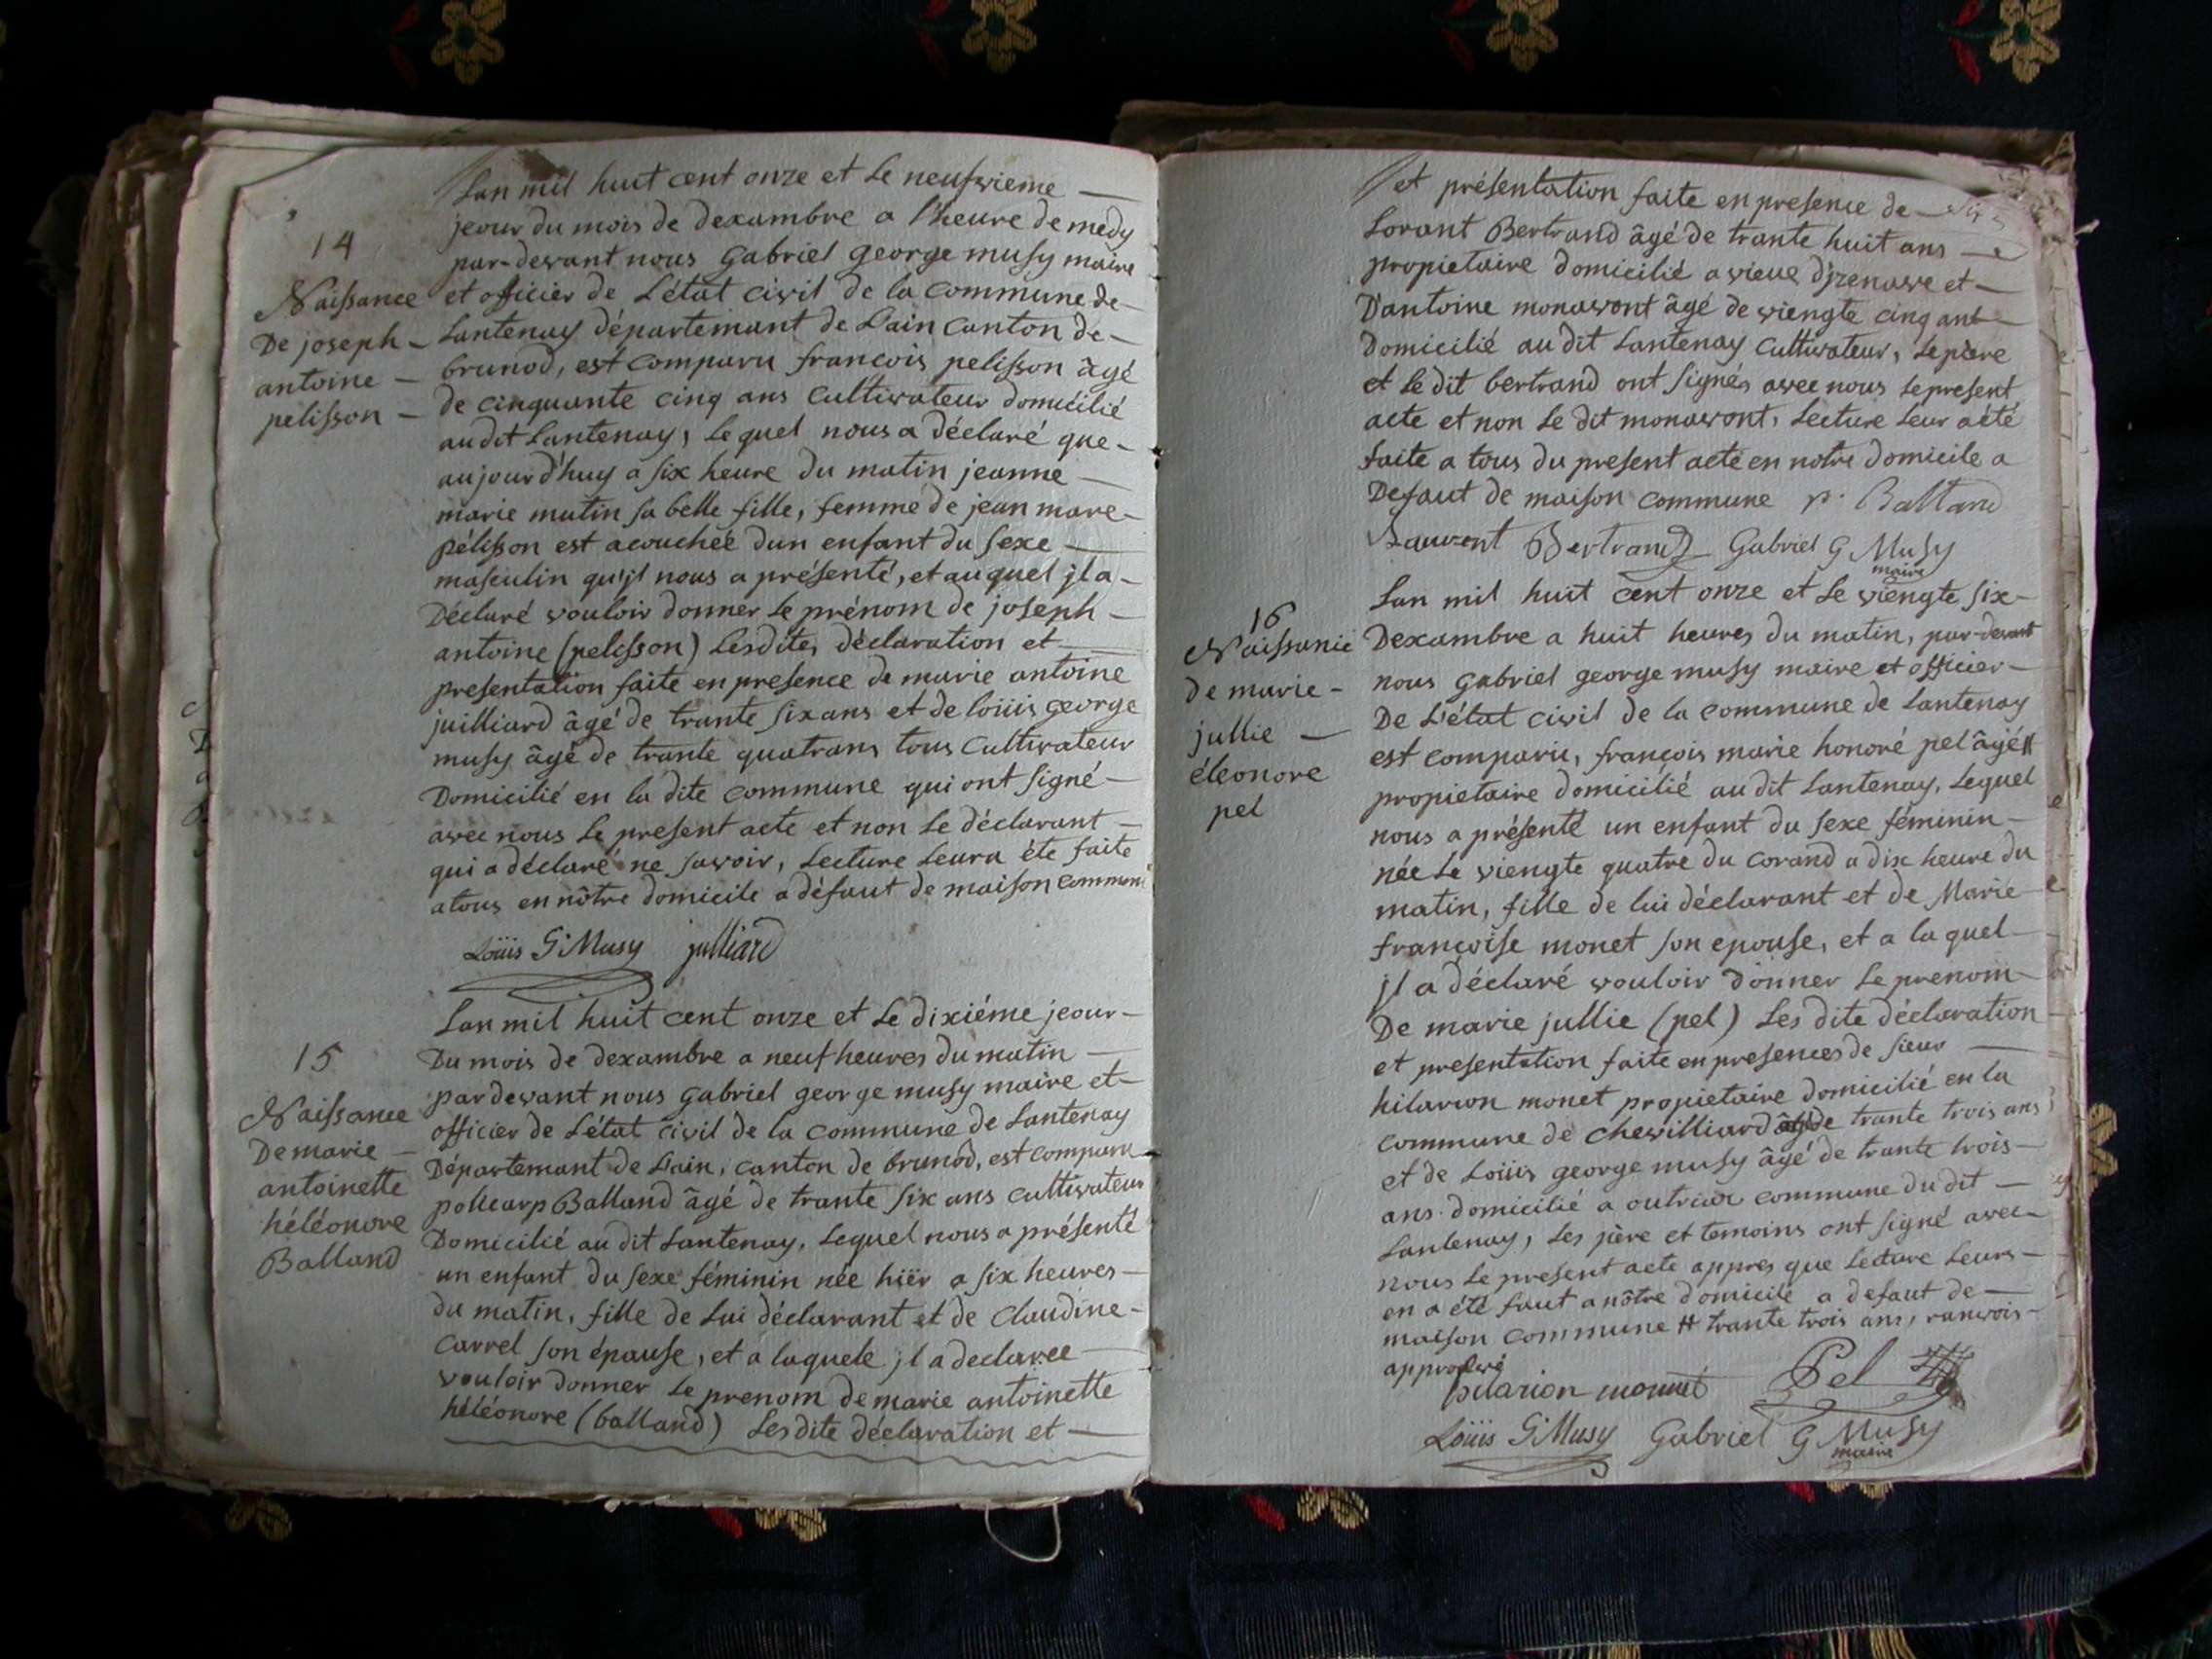 14
Naissance
De joseph
antoine
pelisson
Lan mil huit cent onze et le neufvieme
jeour du mois de dexambre a l'heure de medy
par-devant nous Gabriel george musy maire
et officier de L'état civil de la commune de
Lantenay départemant de Lain canton de
brunod, est comparu francois pelisson âgé
de cinquante cinq ans cultivateur domicilié
au dit Lantenay, Lequel nous a déclaré que
aujourd'huy a six heure du matin jeanne
marie mutin sa belle fille, femme de jean mare
pélisson est acouchée dun enfant du sexe
masculin qu'jl nous a présenté, et auquel jl a
Déclaré vouloir donner le prénom de joseph
antoine (pelisson) Lesdites déclaration et
presentation faite en presence de marie antoine
juilliard âgé de trante six ans et de loüis george
musy âgé de trante quatrans tous cultivateur
Domicilié en la dite commune qui ont signé
avec nous le present acte et non le déclarant
qui a déclaré ne savoir, Lecture Leura éte faite
a tous en nôtre domicile a défaut de maison commune
Loüis G Musy julliard
15
Naissance
De marie
antoinette
héléonore
Balland
Lan mil huit cent onze et le dixiéme jeour
Du mois de dexambre a neuf heures du matin
par devant nous gabriel george musy maire et
officier de L'état civil de la commune de Lantenay
Département de L'ain, canton de brunod, est comparu
policarp Balland âgé de trante six ans cultivateur
Domicilié au dit Lantenay, Lequel nous a présenté
un enfant du sexe féminin née hiër a six heures
du matin, fille de Lui déclarant et de Claudine
Carrel son épause, et a laquele jl a declaree
vouloir donner le prenom de marie antoinette
héléonore (balland) Lesdite déclaration et
et présentation faite en presence de
Lorant Bertrand âgé de trante huit ans
propietaire domicilié a vieux d'jzenave et
D'antoine monavont âgé de viengte cinq ant
Domicilié au dit Lantenay cultivateur, le père
et le dit bertrand ont signés avec nous le present
acte et non le dit monavont, Lecture Leur a été
faite a tous du present acte en notre domicile a
Defaut de maison commune p. Balland
Lauront Bertrand Gabriel G Musy
maire
16
Naissanie
de marie
jullie
éleonore
pel
Lan mil huit cent onze et le viengte six
Dexambre a huit heures du matin, par-devant
nous gabriel george musy maire et officier
De L'état civil de la commune de Lantenay
est comparu, françois marie honoré pel âgé #
propietaire domicilié au dit Lantenay, Lequel
nous a présenté un enfant du sexe féminin
née le viengte quatre du corand a dix heure du
matin, fille de lui déclarant et de Marie
françoise monet son epouse, et a la quel
jl a déclaré vouloir donner le prenom
De marie jullie (pel) Les dite déclaration
et presentation faite en presences de sieur
hilarion monet propietaire domicilié en la
commune de chevilliard âgé de trante trois ans
et de Loüis george musy âgé de trante trois
ans domicilié a outriaz commune du dit
Lantenay, Les père et temoins ont signé avec
nous le present acte appres que Lecture Leurs
en a été faut a nôtre domicile a defaut de
maison commune # trante trois ans, ranvois
approuvé
hilarion monnet Pel
Loüis G Musy Gabriel G Musy
maire